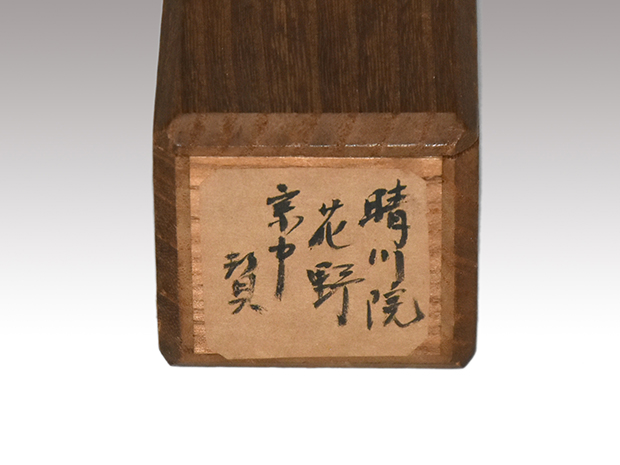 晴川院
花野
宗中
賛